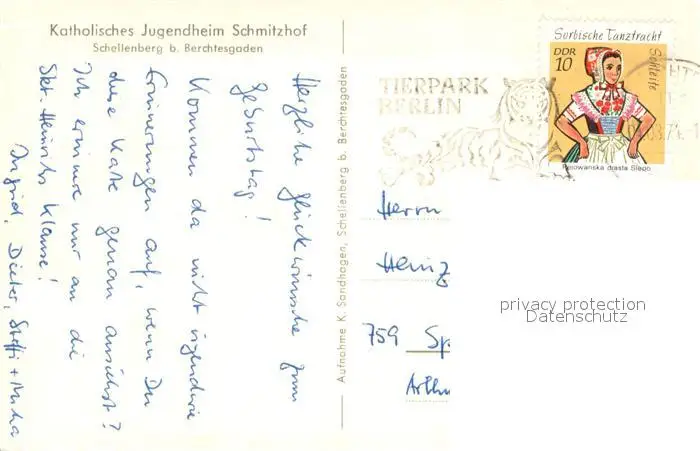 Katholisches Jugendheim Schmitzhof
Schellenberg b. Berchtesgaden
Herzliche Glückwünsche zum
Geburtstag!
Kommen da nicht irgendwie
Erinnerungen auf, wenn Du
diese Karte genau ansiehst?
Ich erinnere nur an die
Skt. Heinrichs Klause!
Ingrid, Dieter, Steffi + Micha
Aufnahme K. Sandhagen, Schellenberg b. Berchtesgaden
TIERPARK
BERLIN
Sorbische Tanztracht
DDR
10
Schleife
Rejowanska drasta Slepo
Herrn
Heinz
759 Sp
Arthu
privacy protection
Datenschutz